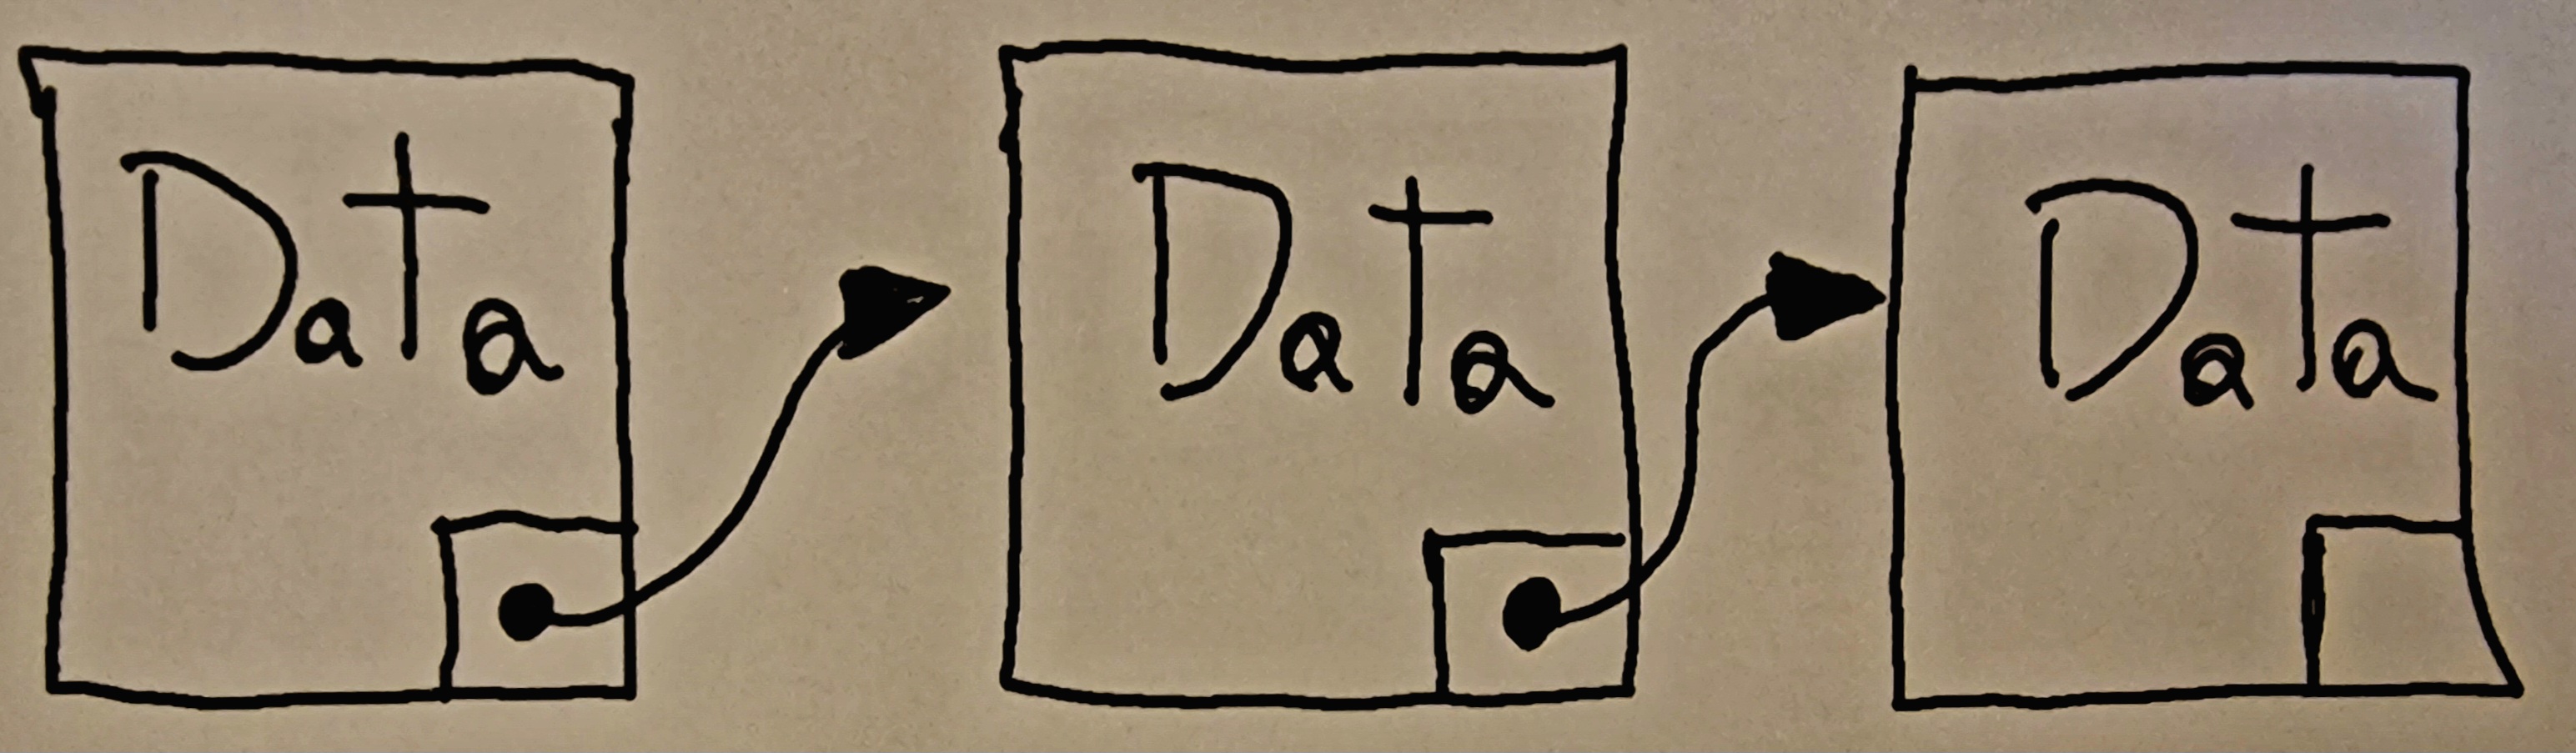 Data Data Data